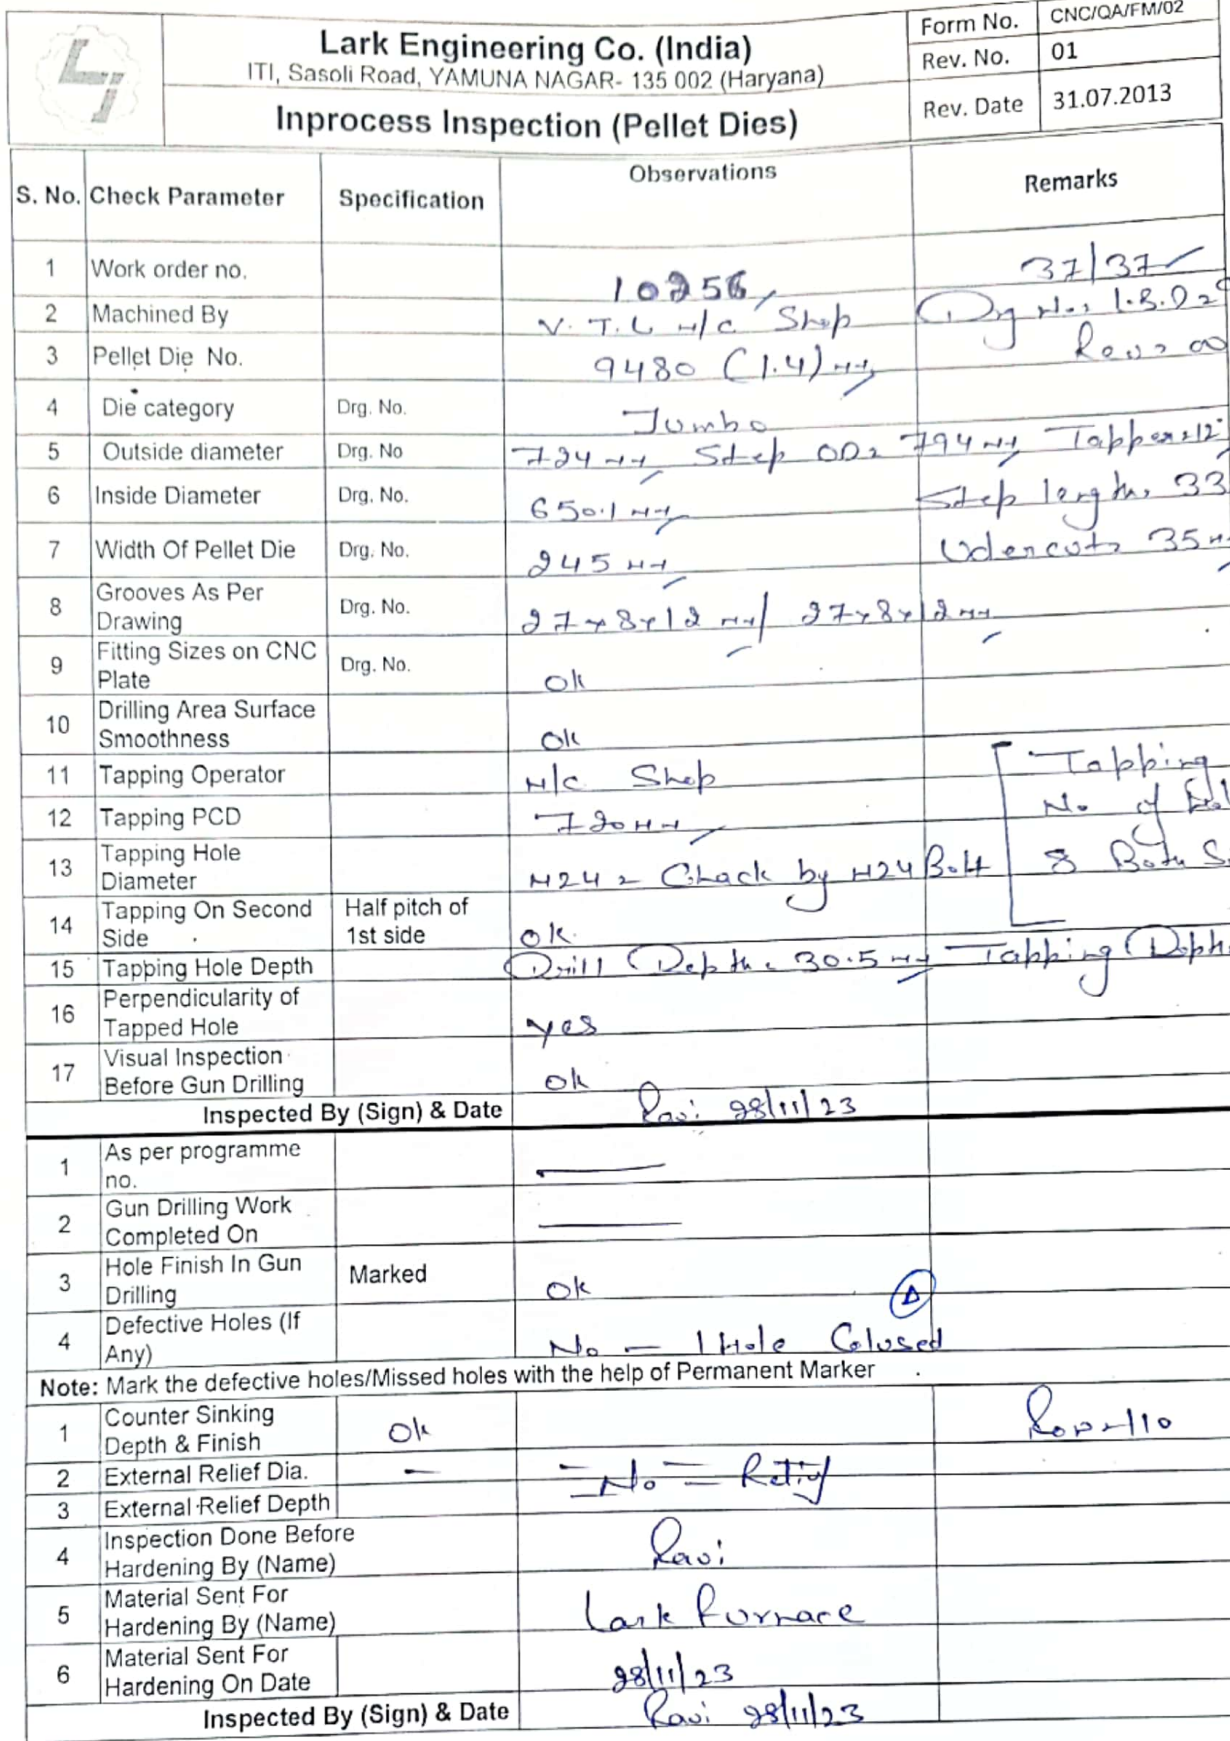 Lark Engineering Co. (India)
ITI, Sasoli Road, YAMUNA NAGAR- 135 002 (Haryana)
Inprocess Inspection (Pellet Dies)
Form No. CNC/QA/FM/02
Rev. No. 01
Rev. Date 31.07.2013
S. No. Check Parameter Specification Observations Remarks
1 Work order no. 10256 37/37
2 Machined By V.T.L M/c Shop Drg No.
3 Pellet Die No. 9480 (1.4) mm
4 Die category Drg. No. Jumbo
5 Outside diameter Drg. No 724 mm Step OD = 794 mm Tapper = 12°
6 Inside Diameter Drg. No. 650.1 mm Step length = 33
7 Width Of Pellet Die Drg. No. 245 mm Udercut = 35
8 Grooves As Per Drawing Drg. No. 27x8x12 mm / 27x8x12 mm
9 Fitting Sizes on CNC Plate Drg. No. Ok
10 Drilling Area Surface Smoothness Ok
11 Tapping Operator M/c Shop Tapping
12 Tapping PCD 720 mm No. of
13 Tapping Hole Diameter M24 = Chack by M24 Bolt 8 Both
14 Tapping On Second Side Half pitch of 1st side Ok.
15 Tapping Hole Depth Drill Depth = 30.5 mm Tapping Depth
16 Perpendicularity of Tapped Hole yes
17 Visual Inspection Before Gun Drilling Ok
Inspected By (Sign) & Date Ravi 28/11/23
1 As per programme no.
2 Gun Drilling Work Completed On
3 Hole Finish In Gun Drilling Marked Ok
4 Defective Holes (If Any) No — 1 Hole Colused
Note: Mark the defective holes/Missed holes with the help of Permanent Marker
1 Counter Sinking Depth & Finish Ok
2 External Relief Dia. — = No =
3 External Relief Depth
4 Inspection Done Before Hardening By (Name) Ravi
5 Material Sent For Hardening By (Name) Lark Furnace
6 Material Sent For Hardening On Date 28/11/23
Inspected By (Sign) & Date Ravi 28/11/23